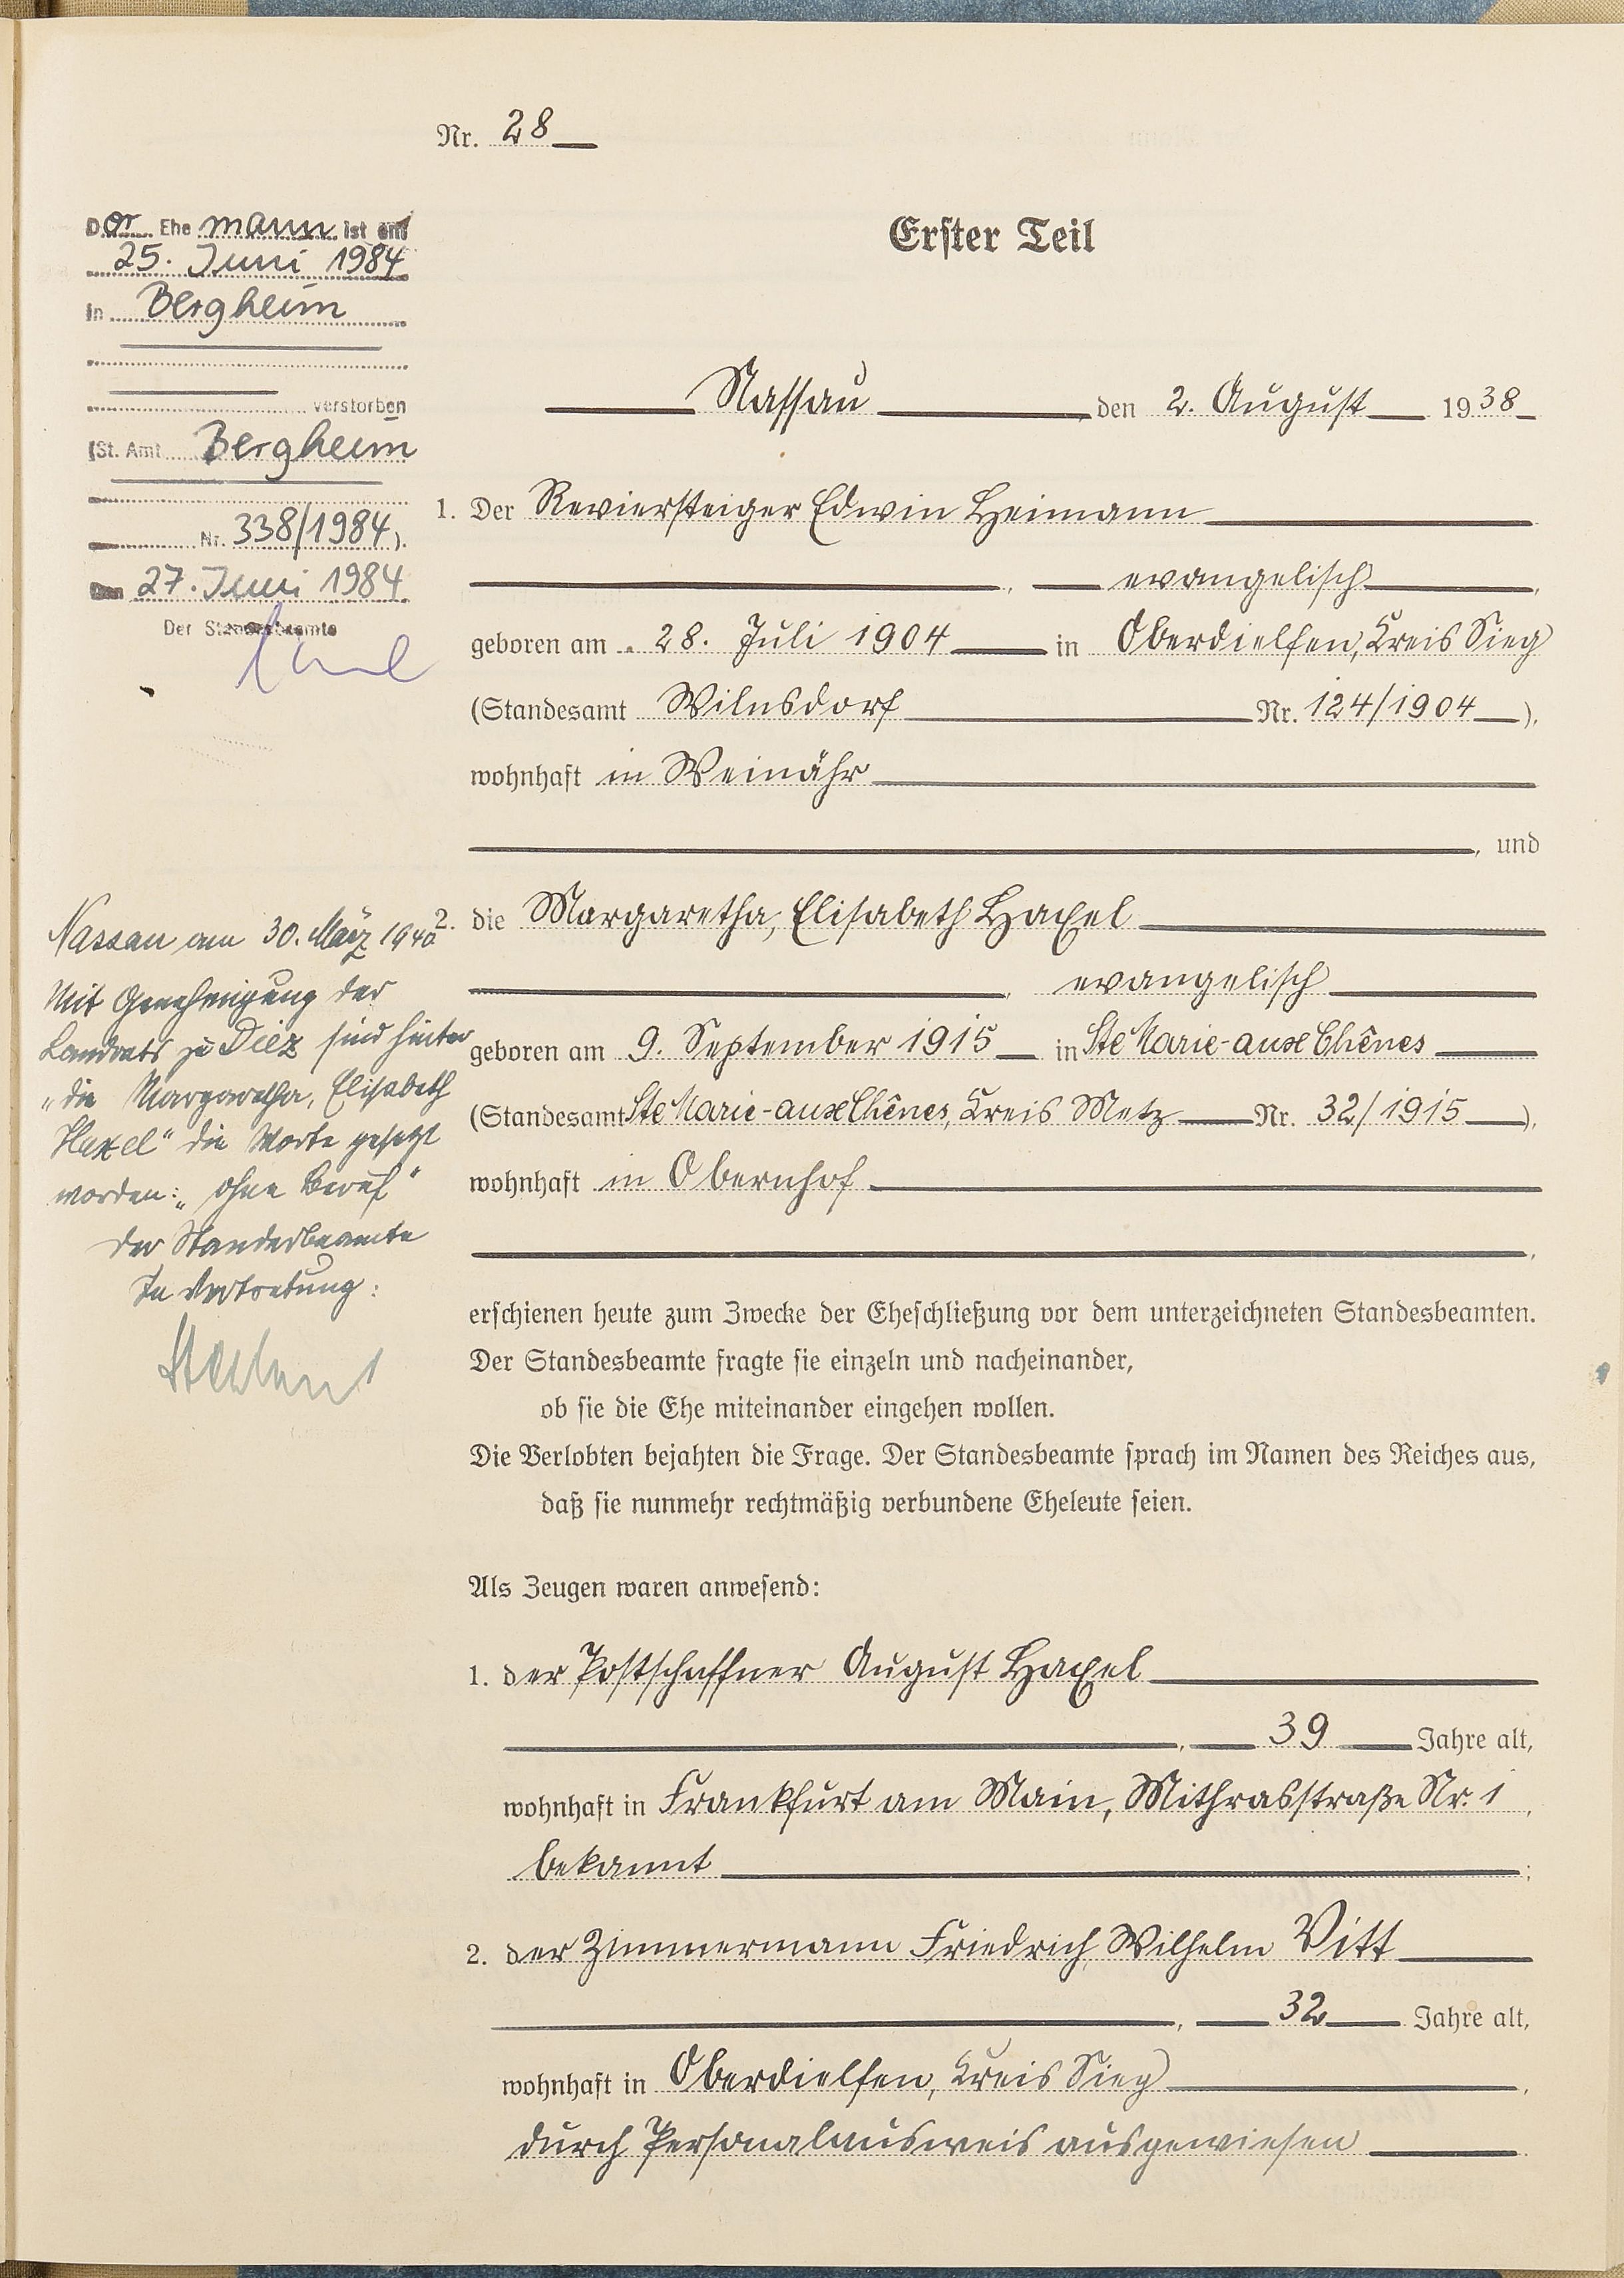 Nr. 28
Der Ehe mann ist am
25. Juni 1984
in Bergheim
verstorben
(St. Amt Bergheim
Nr. 338/1984).
Den 27. Juni 1984
Der Standesbeamte
Erster Teil
Nassau, den 2. August 1938
1. Der Reviersteiger Edwin Heimann
, evangelisch,
geboren am 28. Juli 1904 in Oberdielfen, Kreis Sieg
(Standesamt Wilnsdorf Nr. 124/1904),
wohnhaft in Weinähr
, und
2. die Margaretha, Elisabeth Haxel
, evangelisch
geboren am 9. September 1915 in Ste Marie-aux Chênes
(Standesamt Ste Marie-aux Chênes, Kreis Metz Nr. 32/1915),
wohnhaft in Obernhof
,
Nassau am 30. März 1940
Mit Genehmigung des
Landrats zu Diez sind hinter
„die Margaretha, Elisabeth
Haxel" die Worte gesetzt
worden: „ohne Beruf"
Der Standesbeamte
In Vertretung:
erschienen heute zum Zwecke der Eheschließung vor dem unterzeichneten Standesbeamten.
Der Standesbeamte fragte sie einzeln und nacheinander,
ob sie die Ehe miteinander eingehen wollen.
Die Verlobten bejahten die Frage. Der Standesbeamte sprach im Namen des Reiches aus,
daß sie nunmehr rechtmäßig verbundene Eheleute seien.
Als Zeugen waren anwesend:
1. der Postschaffner August Haxel
, 39 Jahre alt,
wohnhaft in Frankfurt am Main, Mithrasstraße Nr. 1,
bekannt;
2. der Zimmermann Friedrich Wilhelm Vitt
, 32 Jahre alt,
wohnhaft in Oberdielfen, Kreis Sieg,
durch Personalausweis ausgewiesen.